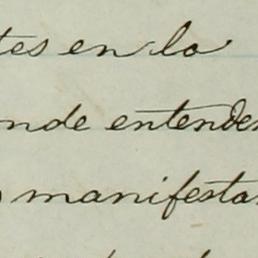 tes en lo
nde entender
manifesta